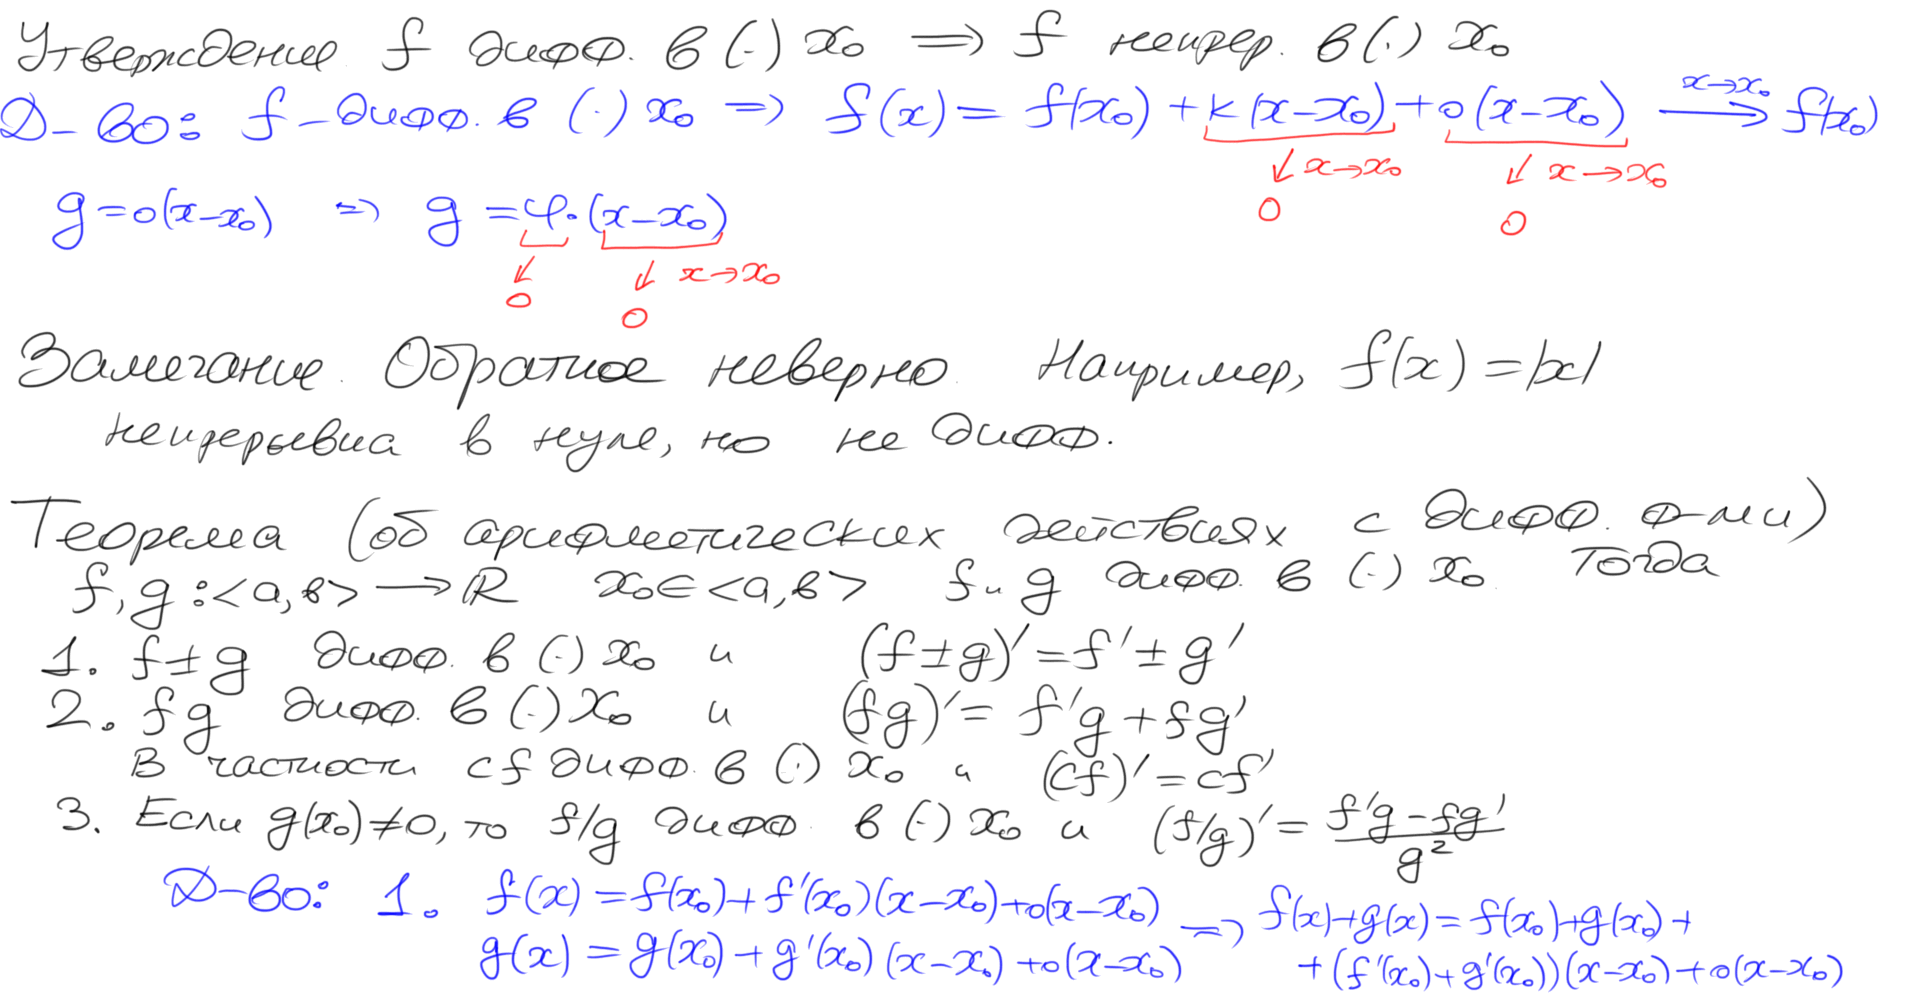 Утверждение f дифф. в (·) x₀ ⟹ f непрер. в (·) x₀
Д-во: f – дифф. в (·) x₀ ⇒ f(x) = f(x₀) + k(x–x₀) + o(x–x₀) ⟶ x→x₀ f(x₀)
↓ x→x₀ ↓ x→x₀
0 0
g = o(x–x₀) ⇒ g = φ·(x–x₀)
↓ ↓ x→x₀
0 0
Замечание. Обратное неверно. Например, f(x) = |x|
непрерывна в нуле, но не дифф.
Теорема (об арифметических действиях с дифф. ф-ми)
f, g : <a, b> ⟶ ℝ x₀ ∈ <a, b> f и g дифф. в (·) x₀. Тогда
1. f ± g дифф. в (·) x₀ и (f ± g)' = f' ± g'
2. fg дифф. в (·) x₀ и (fg)' = f'g + fg'
В частности cf дифф. в (·) x₀ и (cf)' = cf'
3. Если g(x₀) ≠ 0, то f/g дифф. в (·) x₀ и (f/g)' = (f'g – fg')/g²
Д-во: 1. f(x) = f(x₀) + f'(x₀)(x–x₀) + o(x–x₀)
g(x) = g(x₀) + g'(x₀)(x–x₀) + o(x–x₀)
⇒ f(x) + g(x) = f(x₀) + g(x₀) +
+ (f'(x₀) + g'(x₀))(x–x₀) + o(x–x₀)